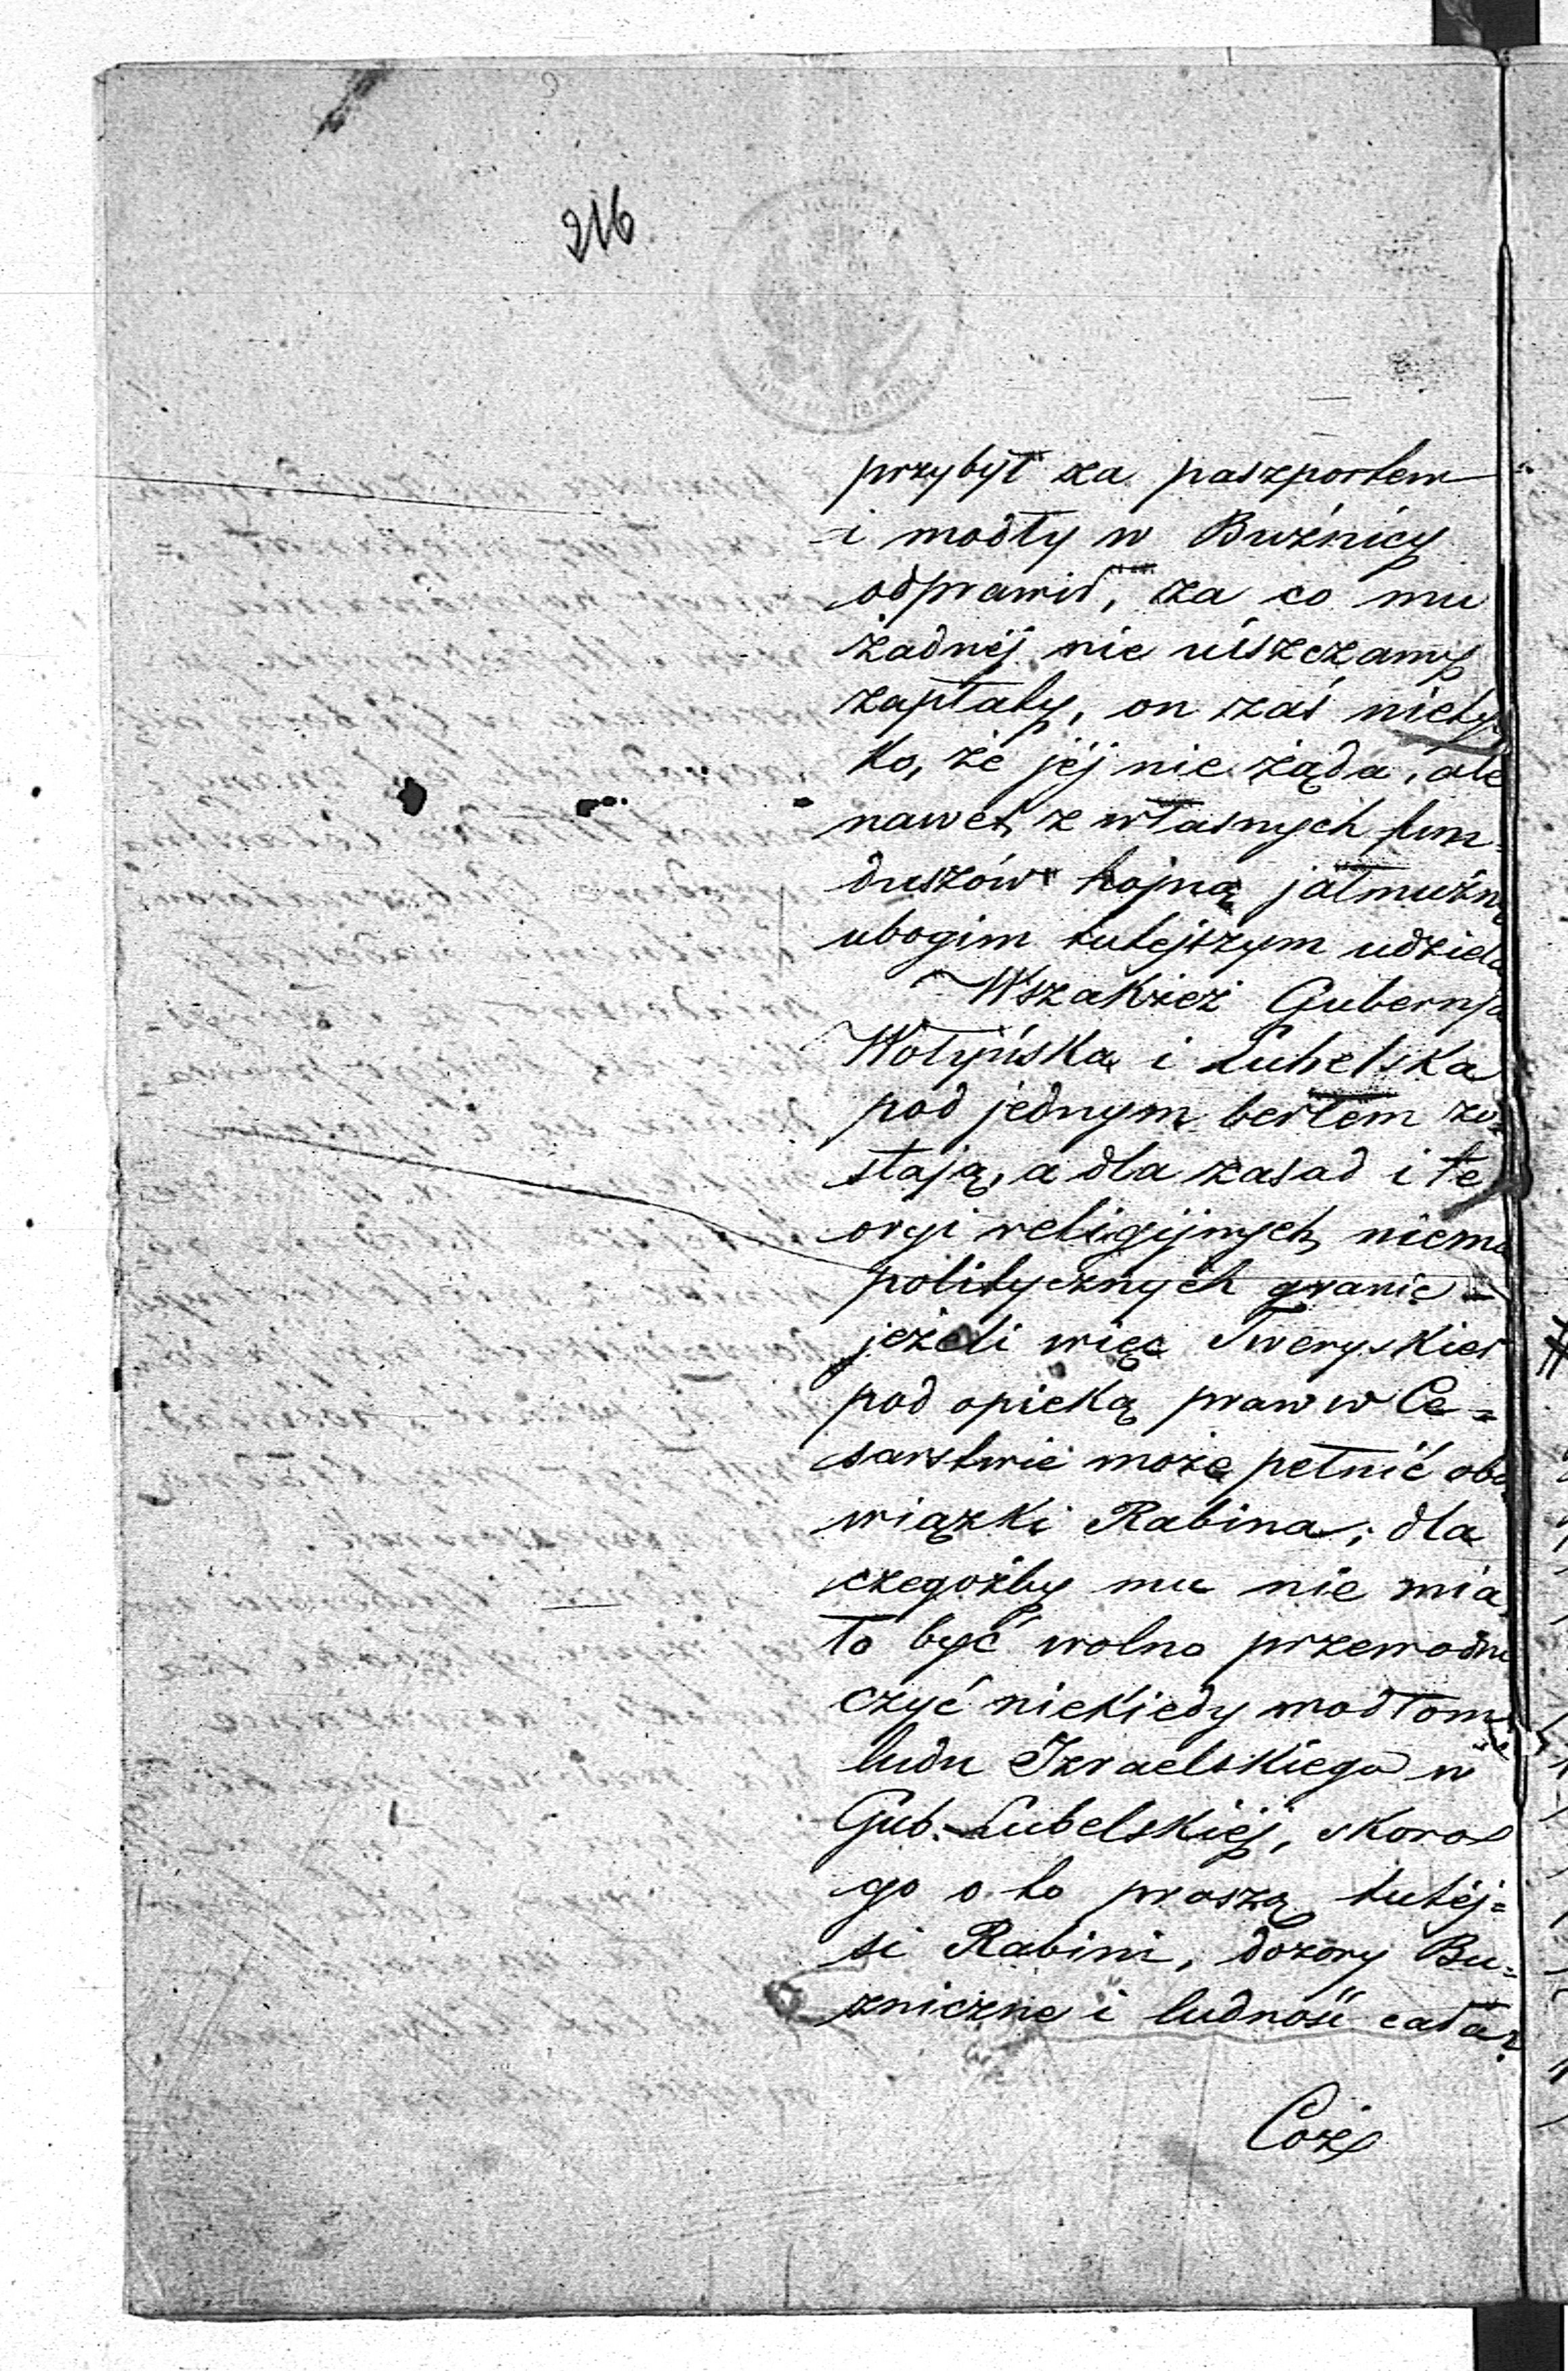 216
przybył za paszportem
i modły w Bużnicy
odprawił, za co mu
żadnéj nie uiszczamy
zapłaty, on zaś niety
ko, że jéj nie żąda, ale
nawet z własnych fun=
duszów hojną jałmużnę
ubogim tutejszym udziela
Wszakżeż Gubernja
Wołyńska i Lubelska
pod jednym berłem zo=
stają, a dla zasad i te
oryi religijnych niema
politycznych granic –
jeżeli więc Tweryskier
pod opieką praw w Ce=
sarstwie może pełnić obo
wiązki Rabina, dla
czegożby mu nie mia
ło być wolno przewodni
czyć niekiedy modłom
ludu Izraelskiego w
Gub. Lubelskiéj, skoro
go o to proszą tutéj=
si Rabini, dozory Bu=
zniczne i ludność cała?
Coż